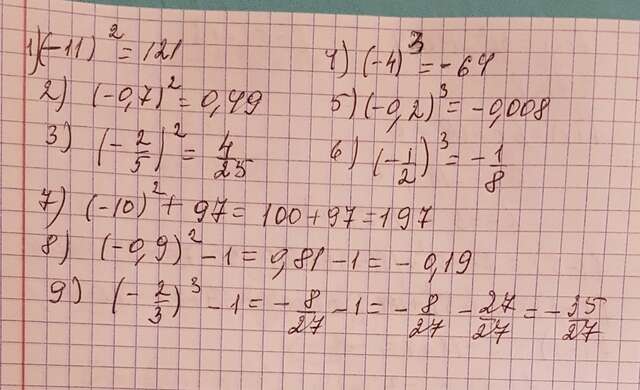 1) (-11)² = 121
4) (-4)³ = -64
2) (-0,7)² = 0,49
5) (-0,2)³ = -0,008
3) (-2/5)² = 4/25
6) (-1/2)³ = -1/8
7) (-10)² + 97 = 100 + 97 = 197
8) (-0,9)² - 1 = 0,81 - 1 = -0,19
9) (-2/3)³ - 1 = -8/27 - 1 = -8/27 - 27/27 = -35/27